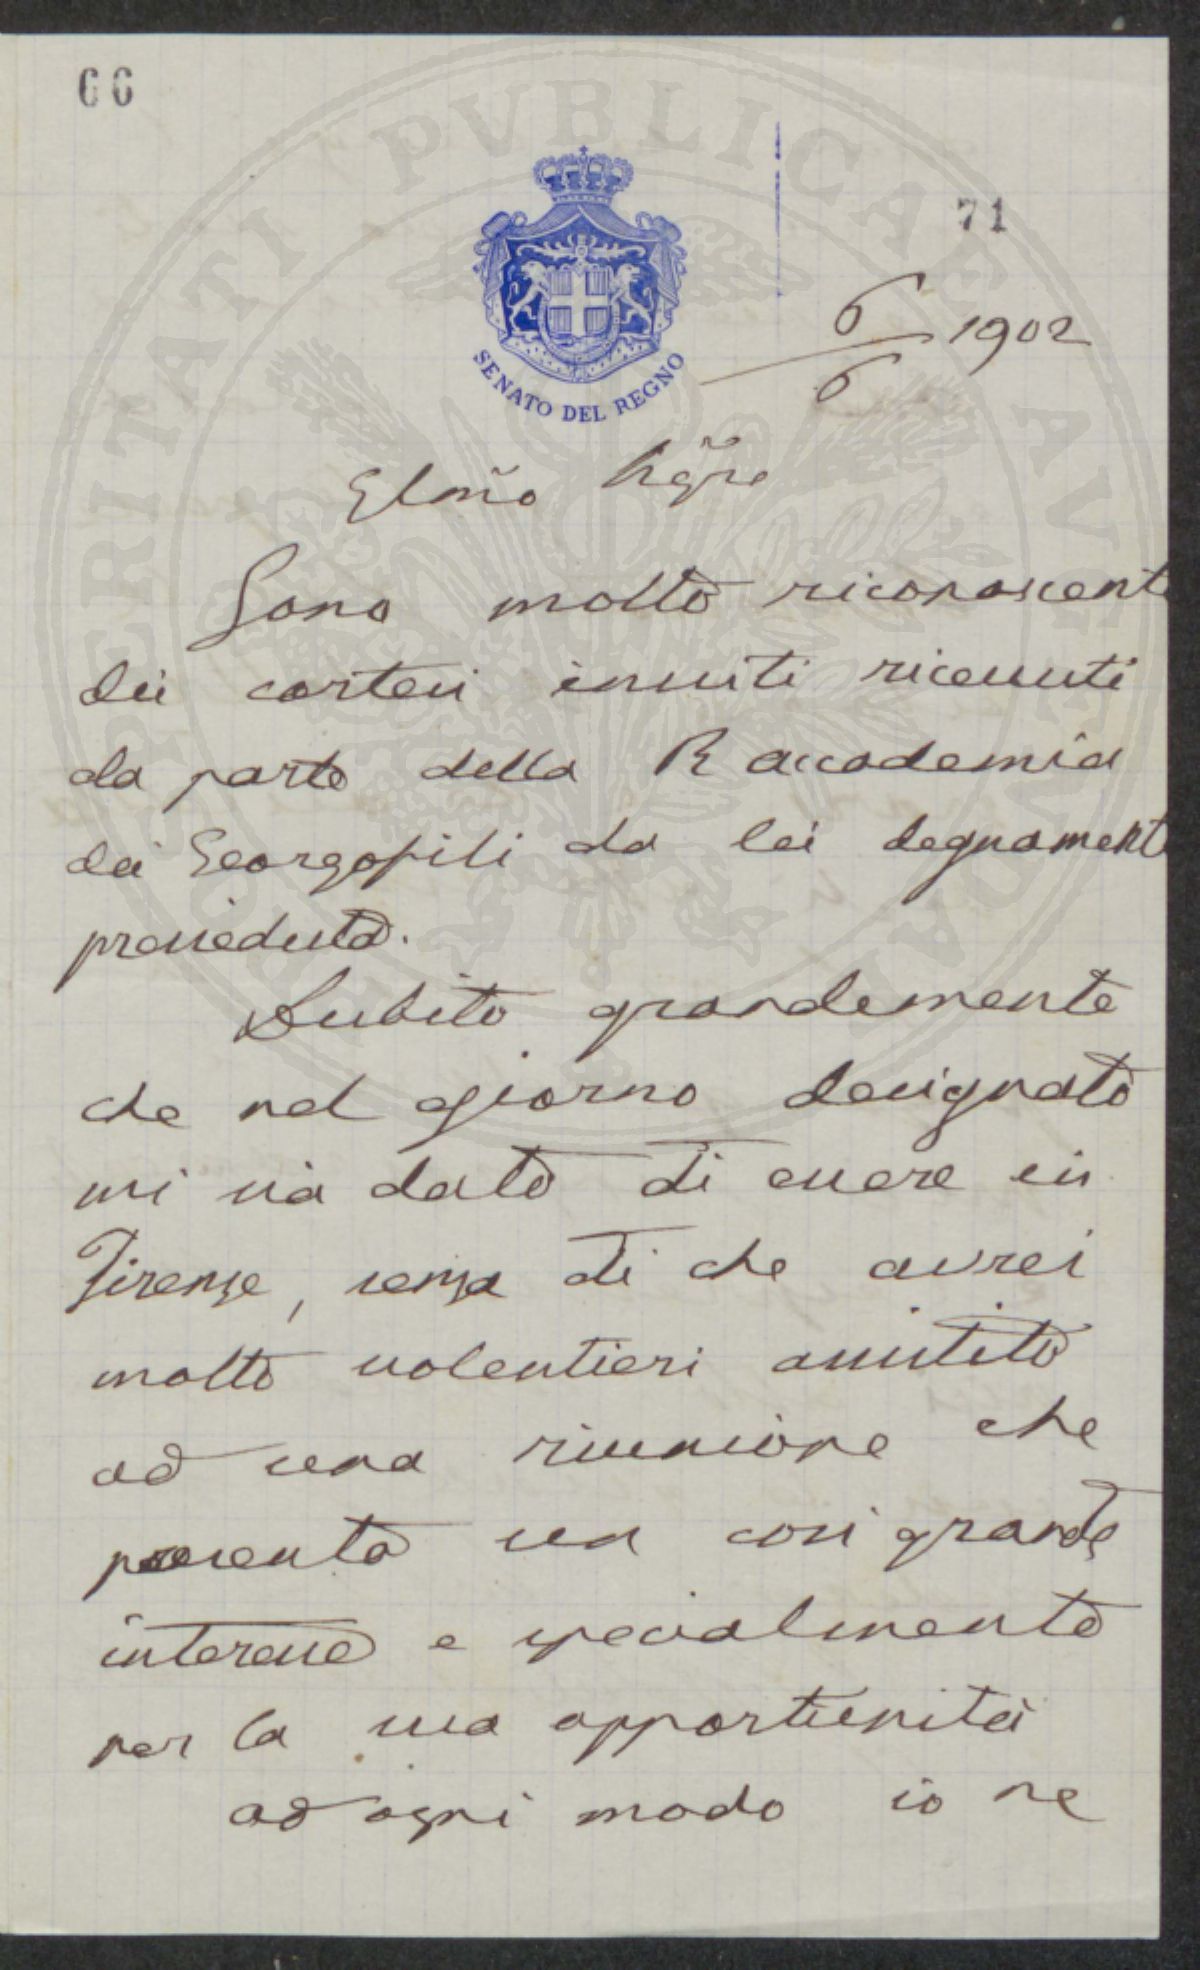 66
71
SENATO DEL REGNO
6/6 1902
Sono molto riconoscente
dei cortesi inviti ricevuti
da parte della R accademia
dei Georgofili da lei degnamente
presieduta.
Dubito grandemente
che nel giorno designato
mi sia dato di essere in
Firenze, senza di che avrei
molto volentieri assistito
ad una riunione che
presenta un così grande
interesse e specialmente
per la sua opportunità
ad ogni modo io ne
PROSPERITATI PVBLICAE AVGENDAE